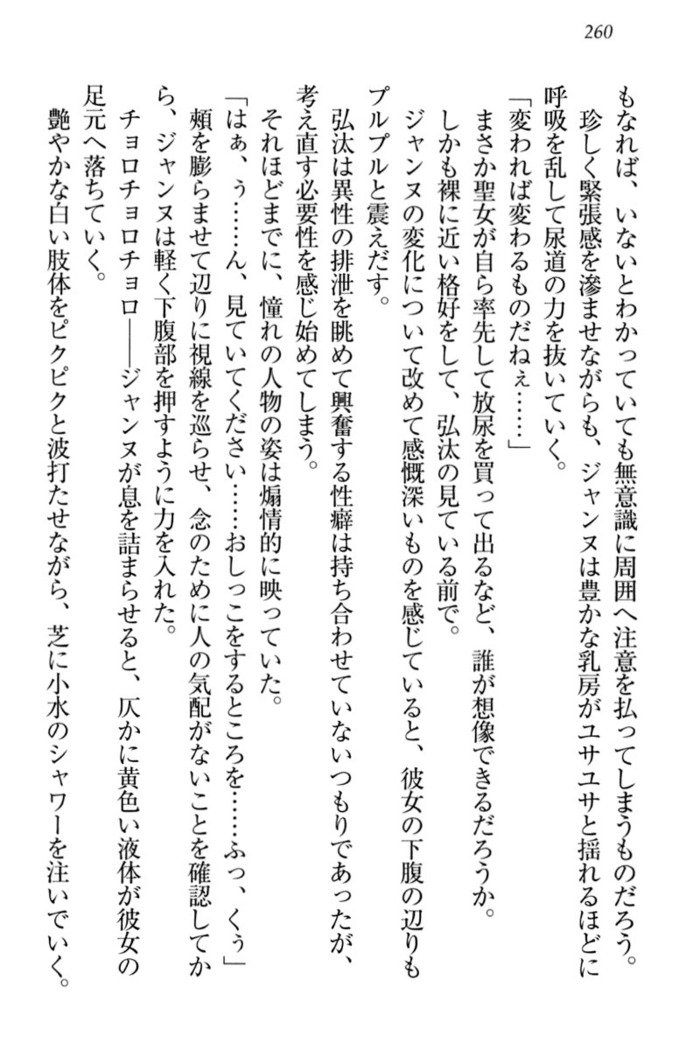 260
もなれば、いないとわかっていても無意識に周囲へ注意を払ってしまうものだろう。
珍しく緊張感を滲ませながらも、ジャンヌは豊かな乳房がユサユサと揺れるほどに
呼吸を乱して尿道の力を抜いていく。
「変われば変わるものだねぇ……」
まさか聖女が自ら率先して放尿を買って出るなど、誰が想像できるだろうか。
しかも裸に近い格好をして、弘汰の見ている前で。
ジャンヌの変化について改めて感慨深いものを感じていると、彼女の下腹の辺りも
プルプルと震えだす。
弘汰は異性の排泄を眺めて興奮する性癖は持ち合わせていないつもりであったが、
考え直す必要性を感じ始めてしまう。
それほどまでに、憧れの人物の姿は煽情的に映っていた。
「はぁ、ぅ……ん、見ていてください……おしっこをするところを……ふっ、くぅ」
頬を膨らませて辺りに視線を巡らせ、念のために人の気配がないことを確認してか
ら、ジャンヌは軽く下腹部を押すように力を入れた。
チョロチョロチョロ――ジャンヌが息を詰まらせると、仄かに黄色い液体が彼女の
足元へ落ちていく。
艶やかな白い肢体をピクピクと波打たせながら、芝に小水のシャワーを注いでいく。